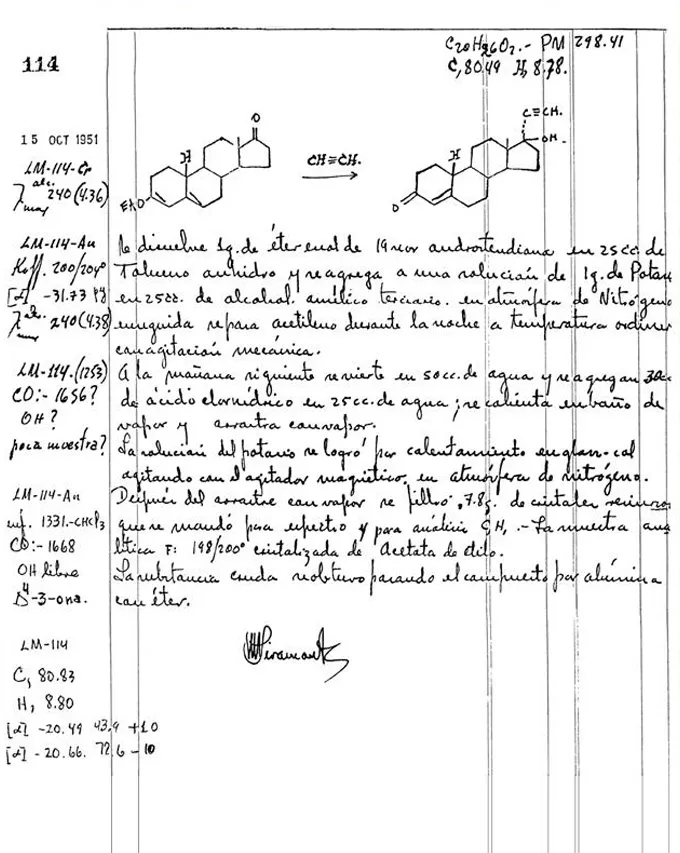 114
C20H26O2.- PM 298.41
C, 80.49 H, 8.78.
15 OCT 1951
LM-114-Cr
λ alc. max 240 (4.36)
LM-114-An
Koff. 200/204°
[α] -31.73
λ alc. max 240 (4.38)
LM-114.(1253)
CO:- 1656?
OH?
poca muestra?
LM-114-An
inf. 1331.-CHCl3
CO:- 1668
OH libre
Δ4-3-ona.
LM-114
C, 80.83
H, 8.80
[α] -20.49 43.9 +10
[α] -20.66. 72.6 -10
O
H
EtO
CH≡CH.
C≡CH.
OH.
H
O
Se disuelve 1g. de éter enol de 19 nor androstendiona en 25 cc. de
Tolueno anhidro y se agrega a una solución de 1g. de Potasio
en 25 cc. de alcohol amílico terciario en atmósfera de Nitrógeno
enseguida se pasa acetileno durante la noche a temperatura ordinaria
con agitación mecánica.
A la mañana siguiente se vierte en 50 cc. de agua y se agregan 30 cc
de ácido clorhídrico en 25 cc. de agua; se calienta en baño de
vapor y arrastra con vapor.
La solución del potasio se logró por calentamiento en glan-col
agitando con el agitador magnético, en atmósfera de nitrógeno.
Después del arrastre con vapor se filtró .78 g. de cristales
que se mandó para espectro y para análisis C, H, .- La muestra ana
lítica F: 198/200° cristalizada de Acetato de etilo.
La substancia cruda se obtuvo pasando el compuesto por alúmina
con éter.